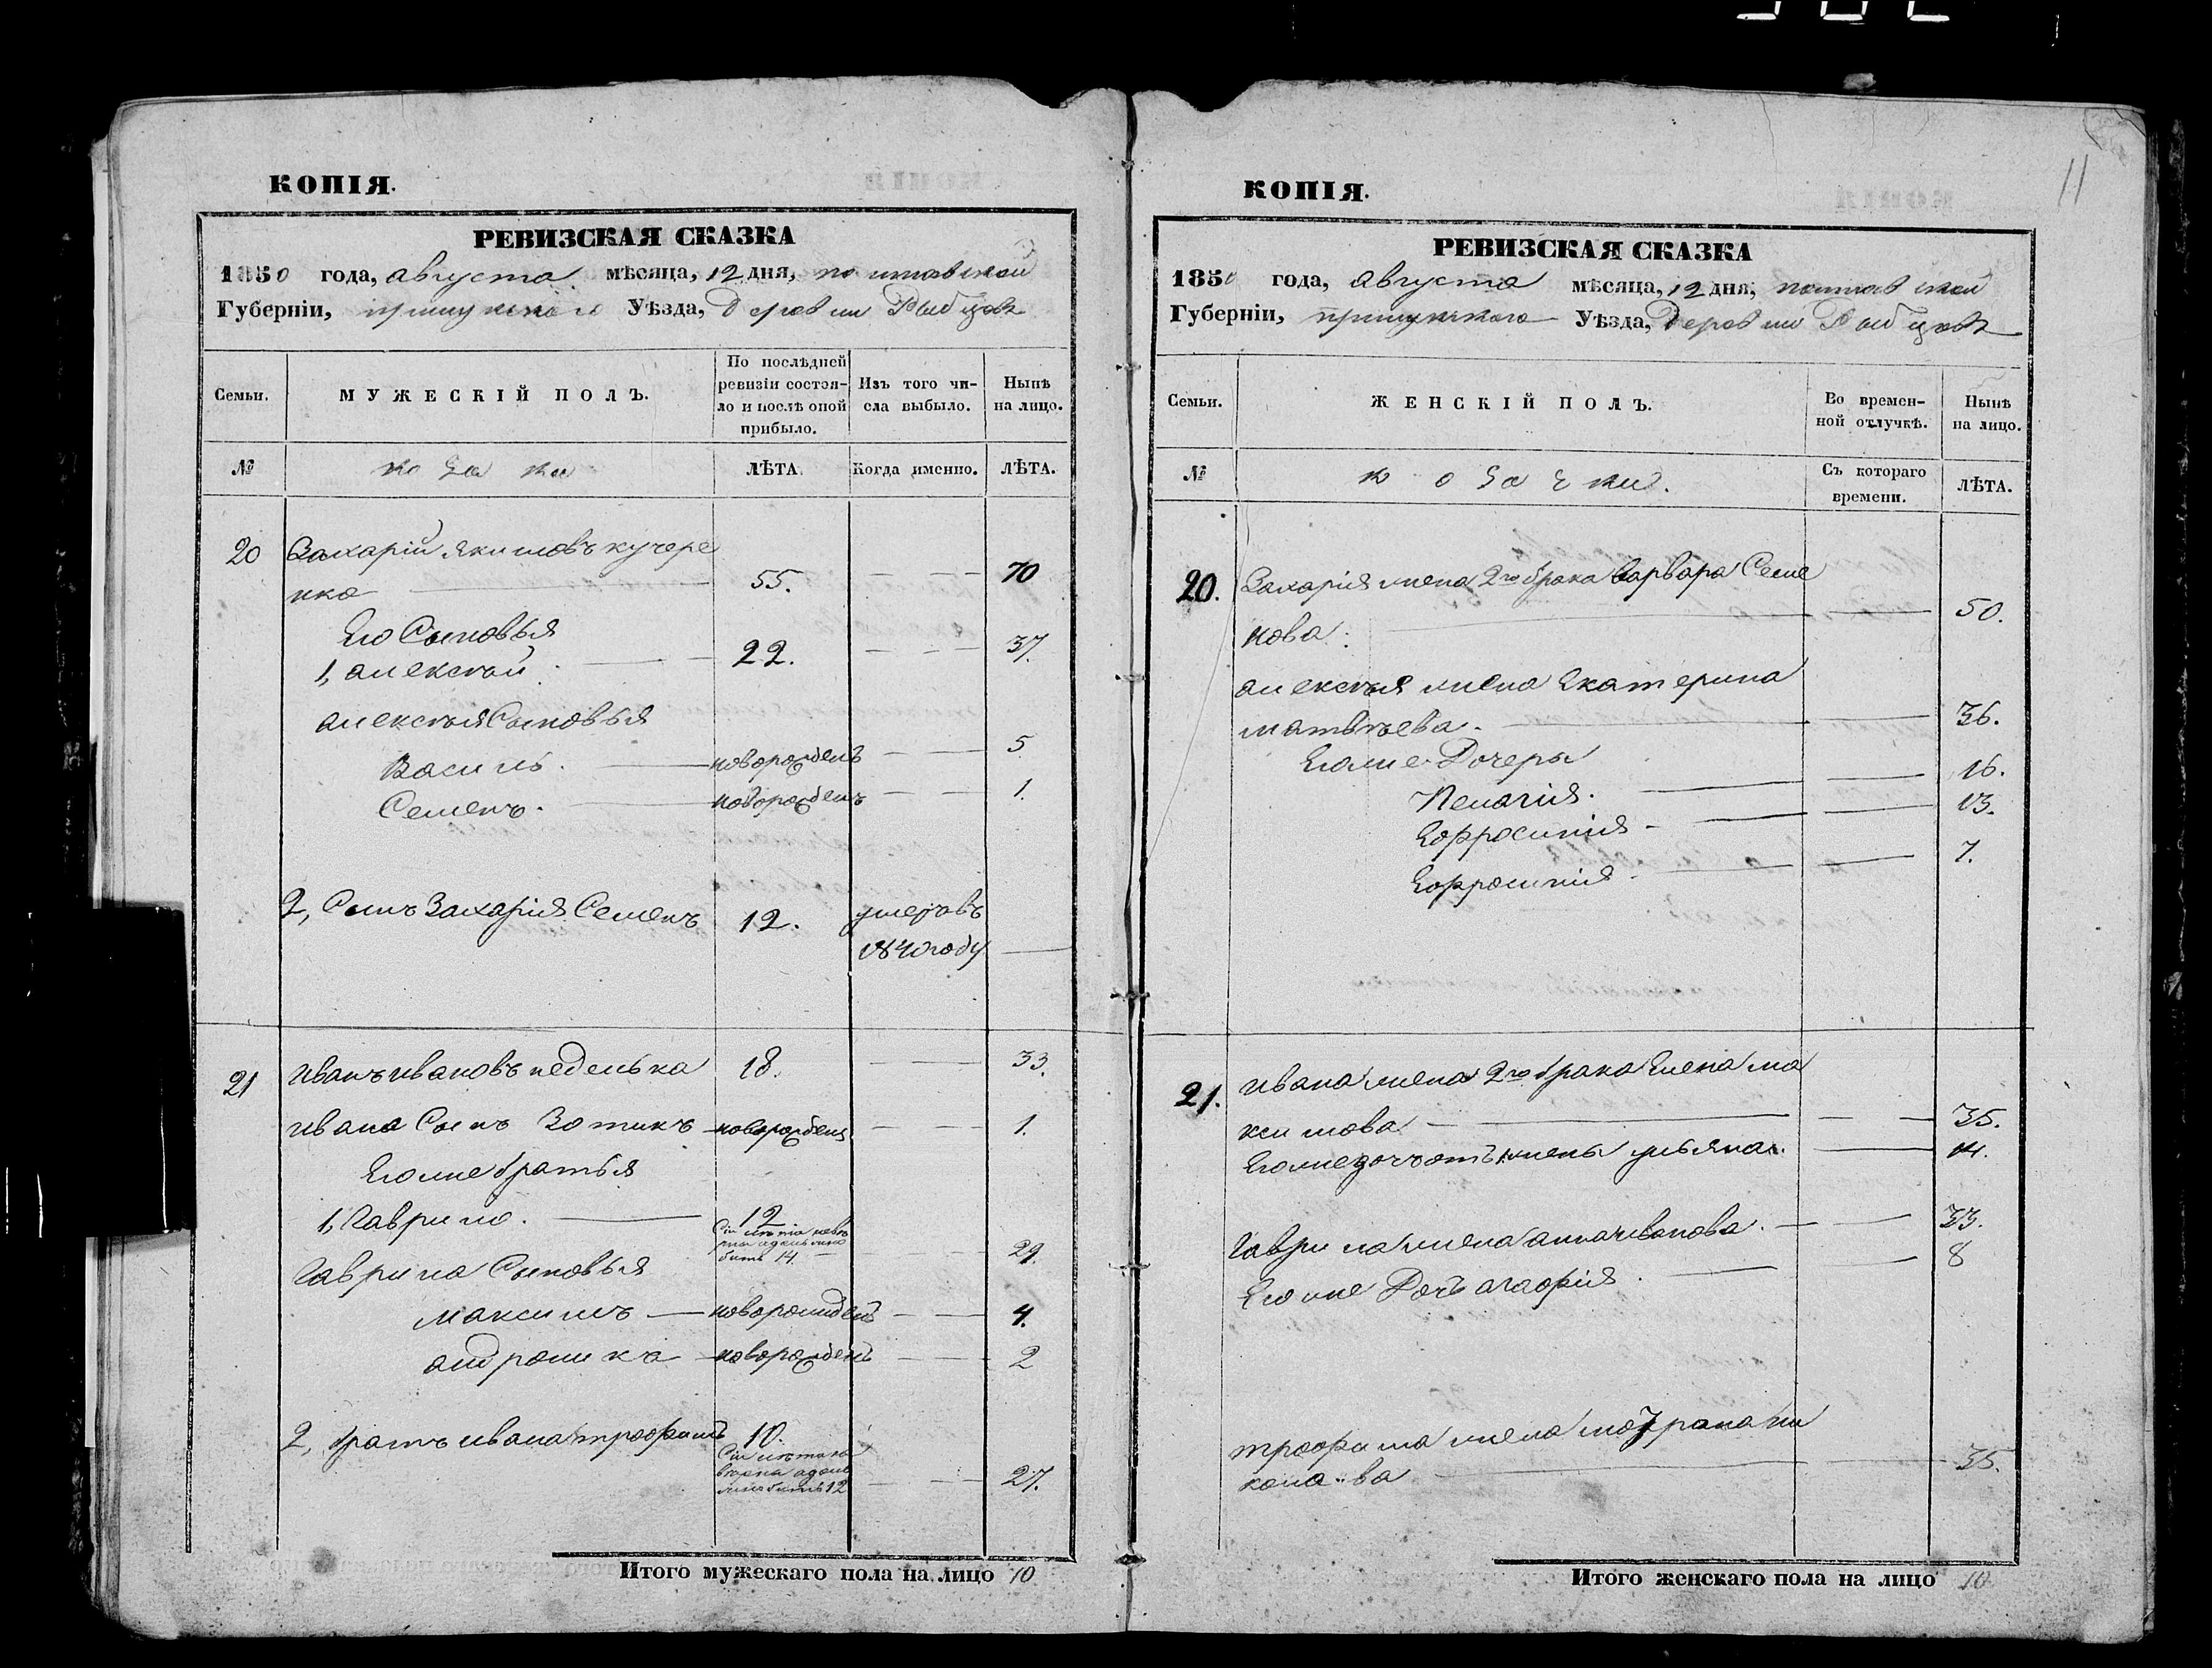 КОПІЯ.
РЕВИЗСКАЯ СКАЗКА
1850 года, августа мѣсяца, 12 дня, полтавской
Губерніи, прилукского Уѣзда, Деревни Рыбцовъ
Семьи.
МУЖЕСКІЙ ПОЛЪ.
По послѣдней ревизіи состоя-
ло и послѣ оной прибыло.
Изъ того чи-
сла выбыло.
Нынѣ
на лицо.
№
козаки
ЛѢТА.
Когда именно.
ЛѢТА.
20 Захарій якимовъ кучере
нко 55. 70
Его Сыновья
1, алексѣй 22. 37.
алексѣя Сыновья
Василь. новорожденъ 5
Семенъ. новорожденъ 1.
2, Сынъ Захарія Семенъ 12. умеръ въ
1840 году
21 иванъ ивановъ неделька 18. 33.
ивана Сынъ Зотикъ новорожден 1.
Его же братья
1, Гаврило. 12
Сіи лѣта
бить 14. 29.
Гаврила Сыновья
максимъ новорожденъ 4.
андроникъ новорожденъ 2
2, братъ ивана трофимъ 10.
Сіи лѣта
бить 12 27.
Итого мужескаго пола на лицо 10
11
КОПІЯ.
РЕВИЗСКАЯ СКАЗКА
1850 года, августа мѣсяца, 12 дня, полтавской
Губерніи, прилукского Уѣзда, Деревни Рыбцовъ
Семьи.
ЖЕНСКІЙ ПОЛЪ.
Во времен-
ной отлучкѣ.
Нынѣ
на лицо.
№
козачки.
Съ котораго
времени.
ЛѢТА.
20. Захарія жена 2го брака варвара Семе
нова. 50.
алексѣя жена Екатерина
матвѣева. 36.
Его же Дочеры
Пелагія. 16.
Ефросинія 13.
Ефросинія 7.
21. ивана жена 2го брака Елена ма
ксимова 35.
Его же дочь отъ 1 жены ульяна. 14.
Гаврила жена анна иванова. 33.
Его же Дочь агафія. 8
трофима жена мотрона ни
колаева 35.
Итого женскаго пола на лицо 10